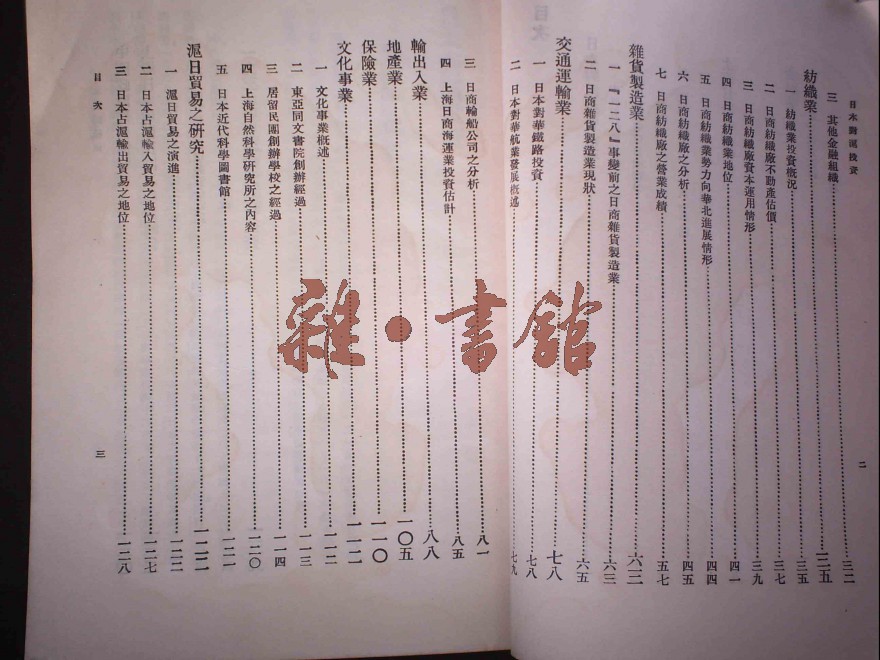 日本對滬投資
二
三 其他金融組織……三二
紡織業……三五
一 紡織業投資概況……三五
二 日商紡織廠不動產估價……三七
三 日商紡織廠資本運用情形……三九
四 日商紡織業地位……四一
五 日商紡織業勢力向華北進展情形……四四
六 日商紡織廠之分析……四五
七 日商紡織廠之營業成績……五七
雜貨製造業……六三
一 『一二八』事變前之日商雜貨製造業……六三
二 日商雜貨製造業現狀……六五
交通運輸業……七八
一 日本對華鐵路投資……七八
二 日本對華航業發展概述……七九
三 日商輪船公司之分析……八一
四 上海日商海運業投資估計……八五
輸出入業……八八
地產業……一〇五
保險業……一一〇
文化事業……一一二
一 文化事業概述……一一二
二 東亞同文書院創辦經過……一一三
三 居留民團創辦學校之經過……一一四
四 上海自然科學研究所之內容……一二〇
五 日本近代科學圖書館……一二一
滬日貿易之研究……一二二
一 滬日貿易之演進……一二二
二 日本占滬輸入貿易之地位……一二七
三 日本占滬輸出貿易之地位……一二八
目次
三
雜·書館